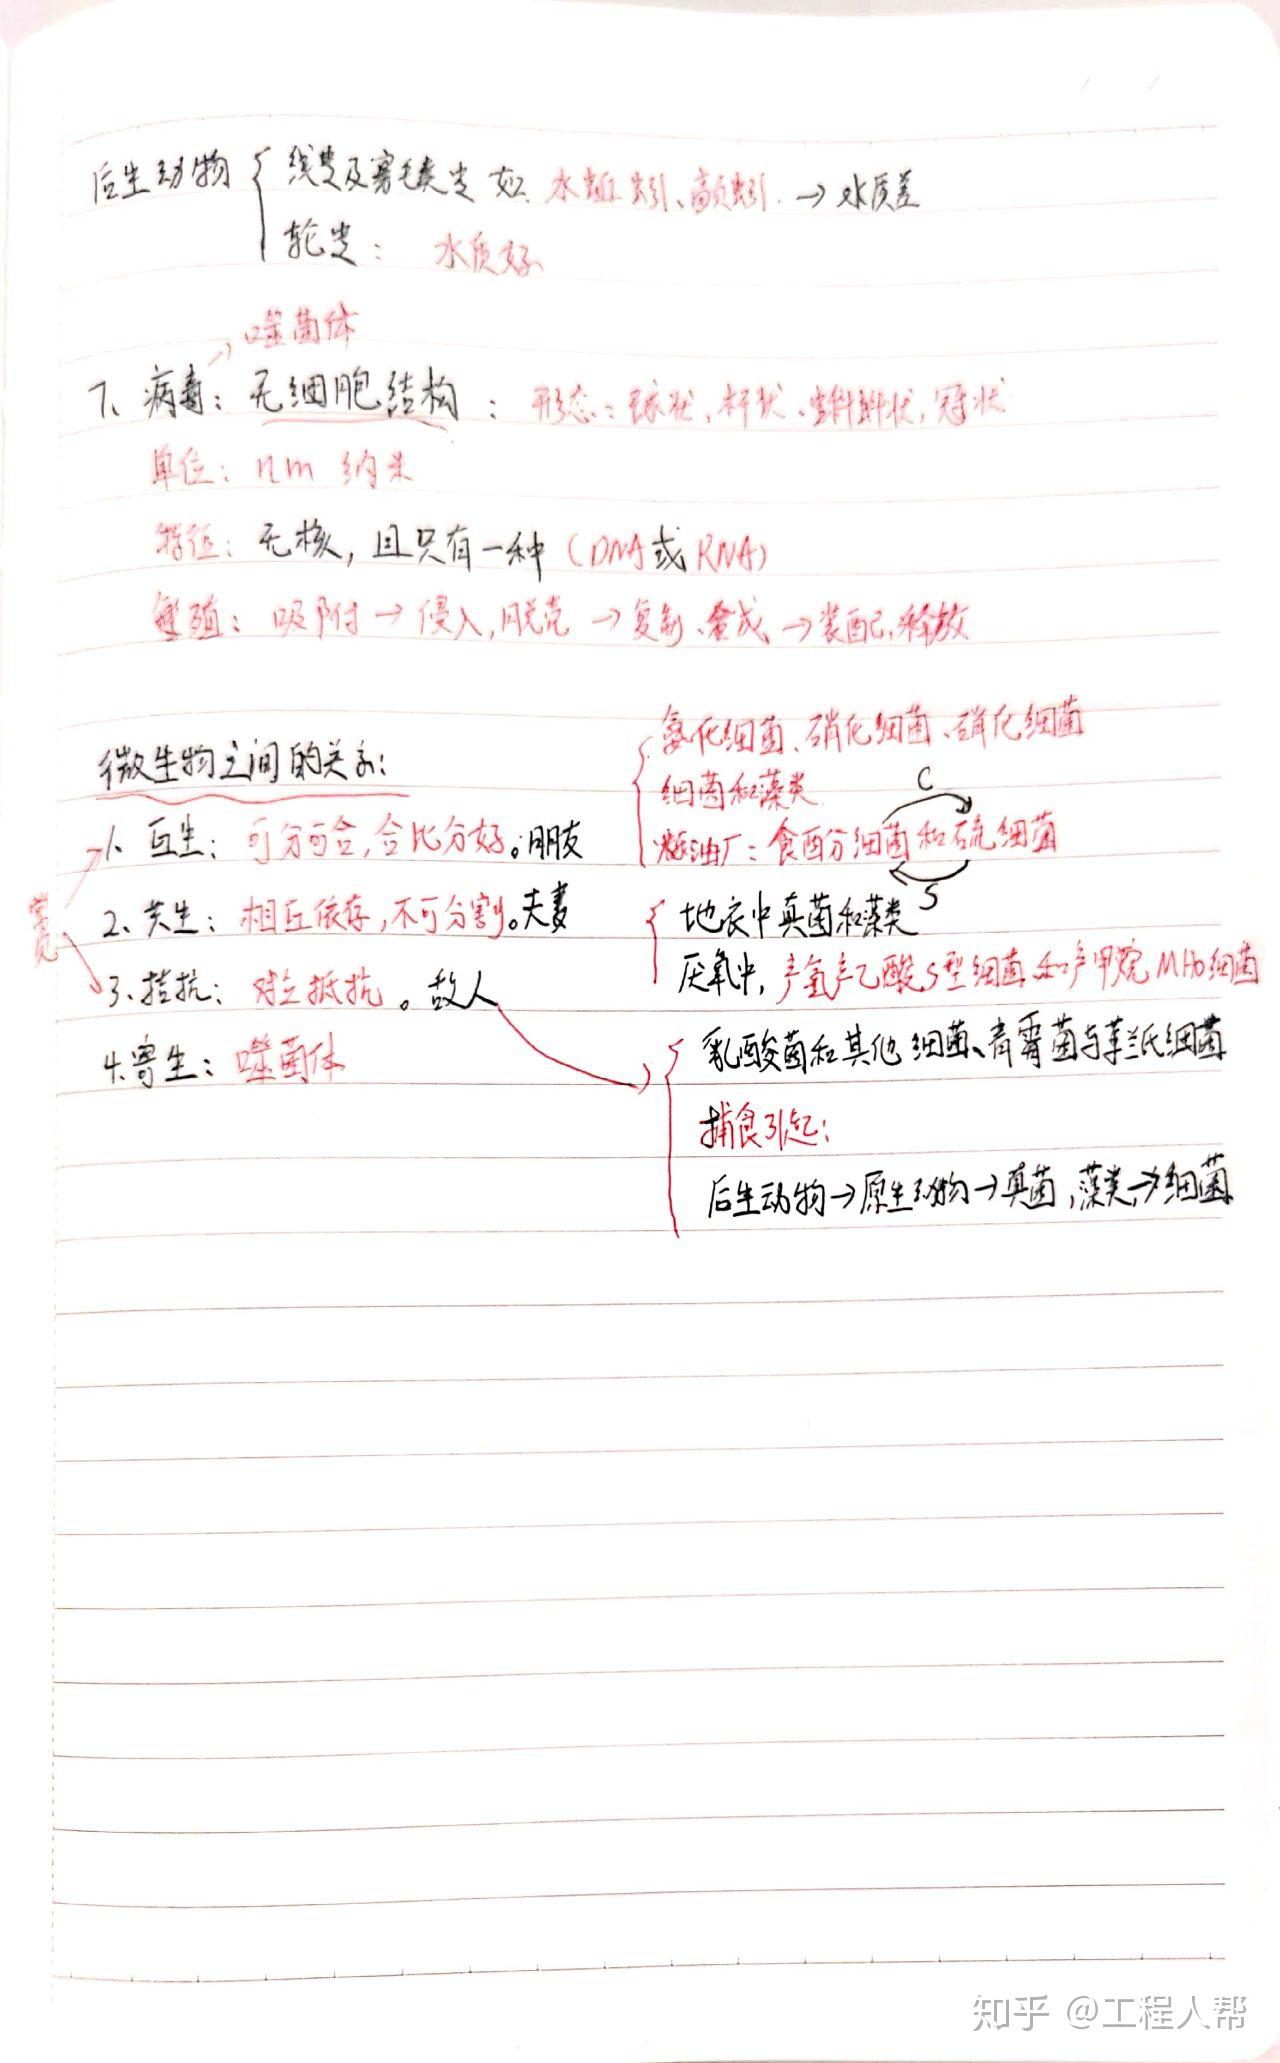 后生动物 { 线虫及寡毛类虫 如 水蚯蚓、颤蚓 → 水质差
轮虫： 水质好
→ 噬菌体
7、病毒：无细胞结构：形态：球状，杆状、蝌蚪状，冠状
单位：nm 纳米
特征：无核，且只有一种（DNA或RNA）
繁殖：吸附 → 侵入，脱壳 → 复制、合成 → 装配，释放
微生物之间的关系：
常见
1、互生：可分可合，合比分好。朋友
氨化细菌、硝化细菌、硝化细菌
细菌和藻类
炼油厂：食酚细菌和硫细菌
C
S
2、共生：相互依存，不可分割。夫妻
地衣中真菌和藻类
厌氧中，产氢产乙酸S型细菌和产甲烷MHO细菌
3、拮抗：对立抵抗。敌人
乳酸菌和其他细菌、青霉菌与革兰氏细菌
捕食引起：
后生动物→原生动物→真菌，藻类→细菌
4、寄生：噬菌体
知乎 @工程人帮